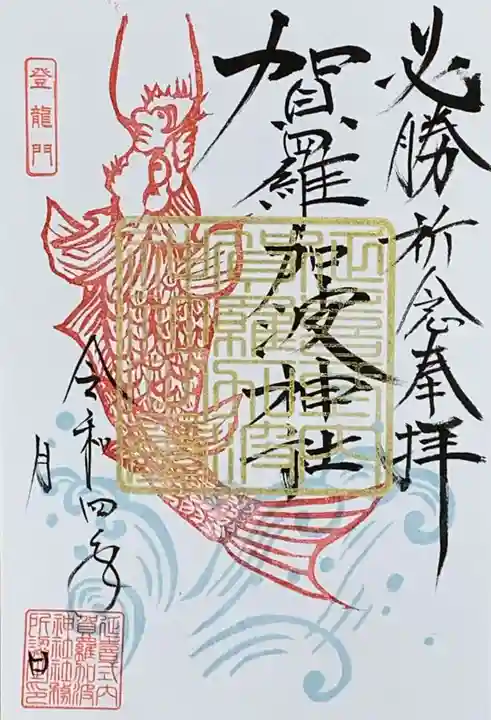 必勝祈念奉拝
賀羅加波神社
登龍門
令和四年
月
日
延喜式内
賀羅加波
神社社務
所